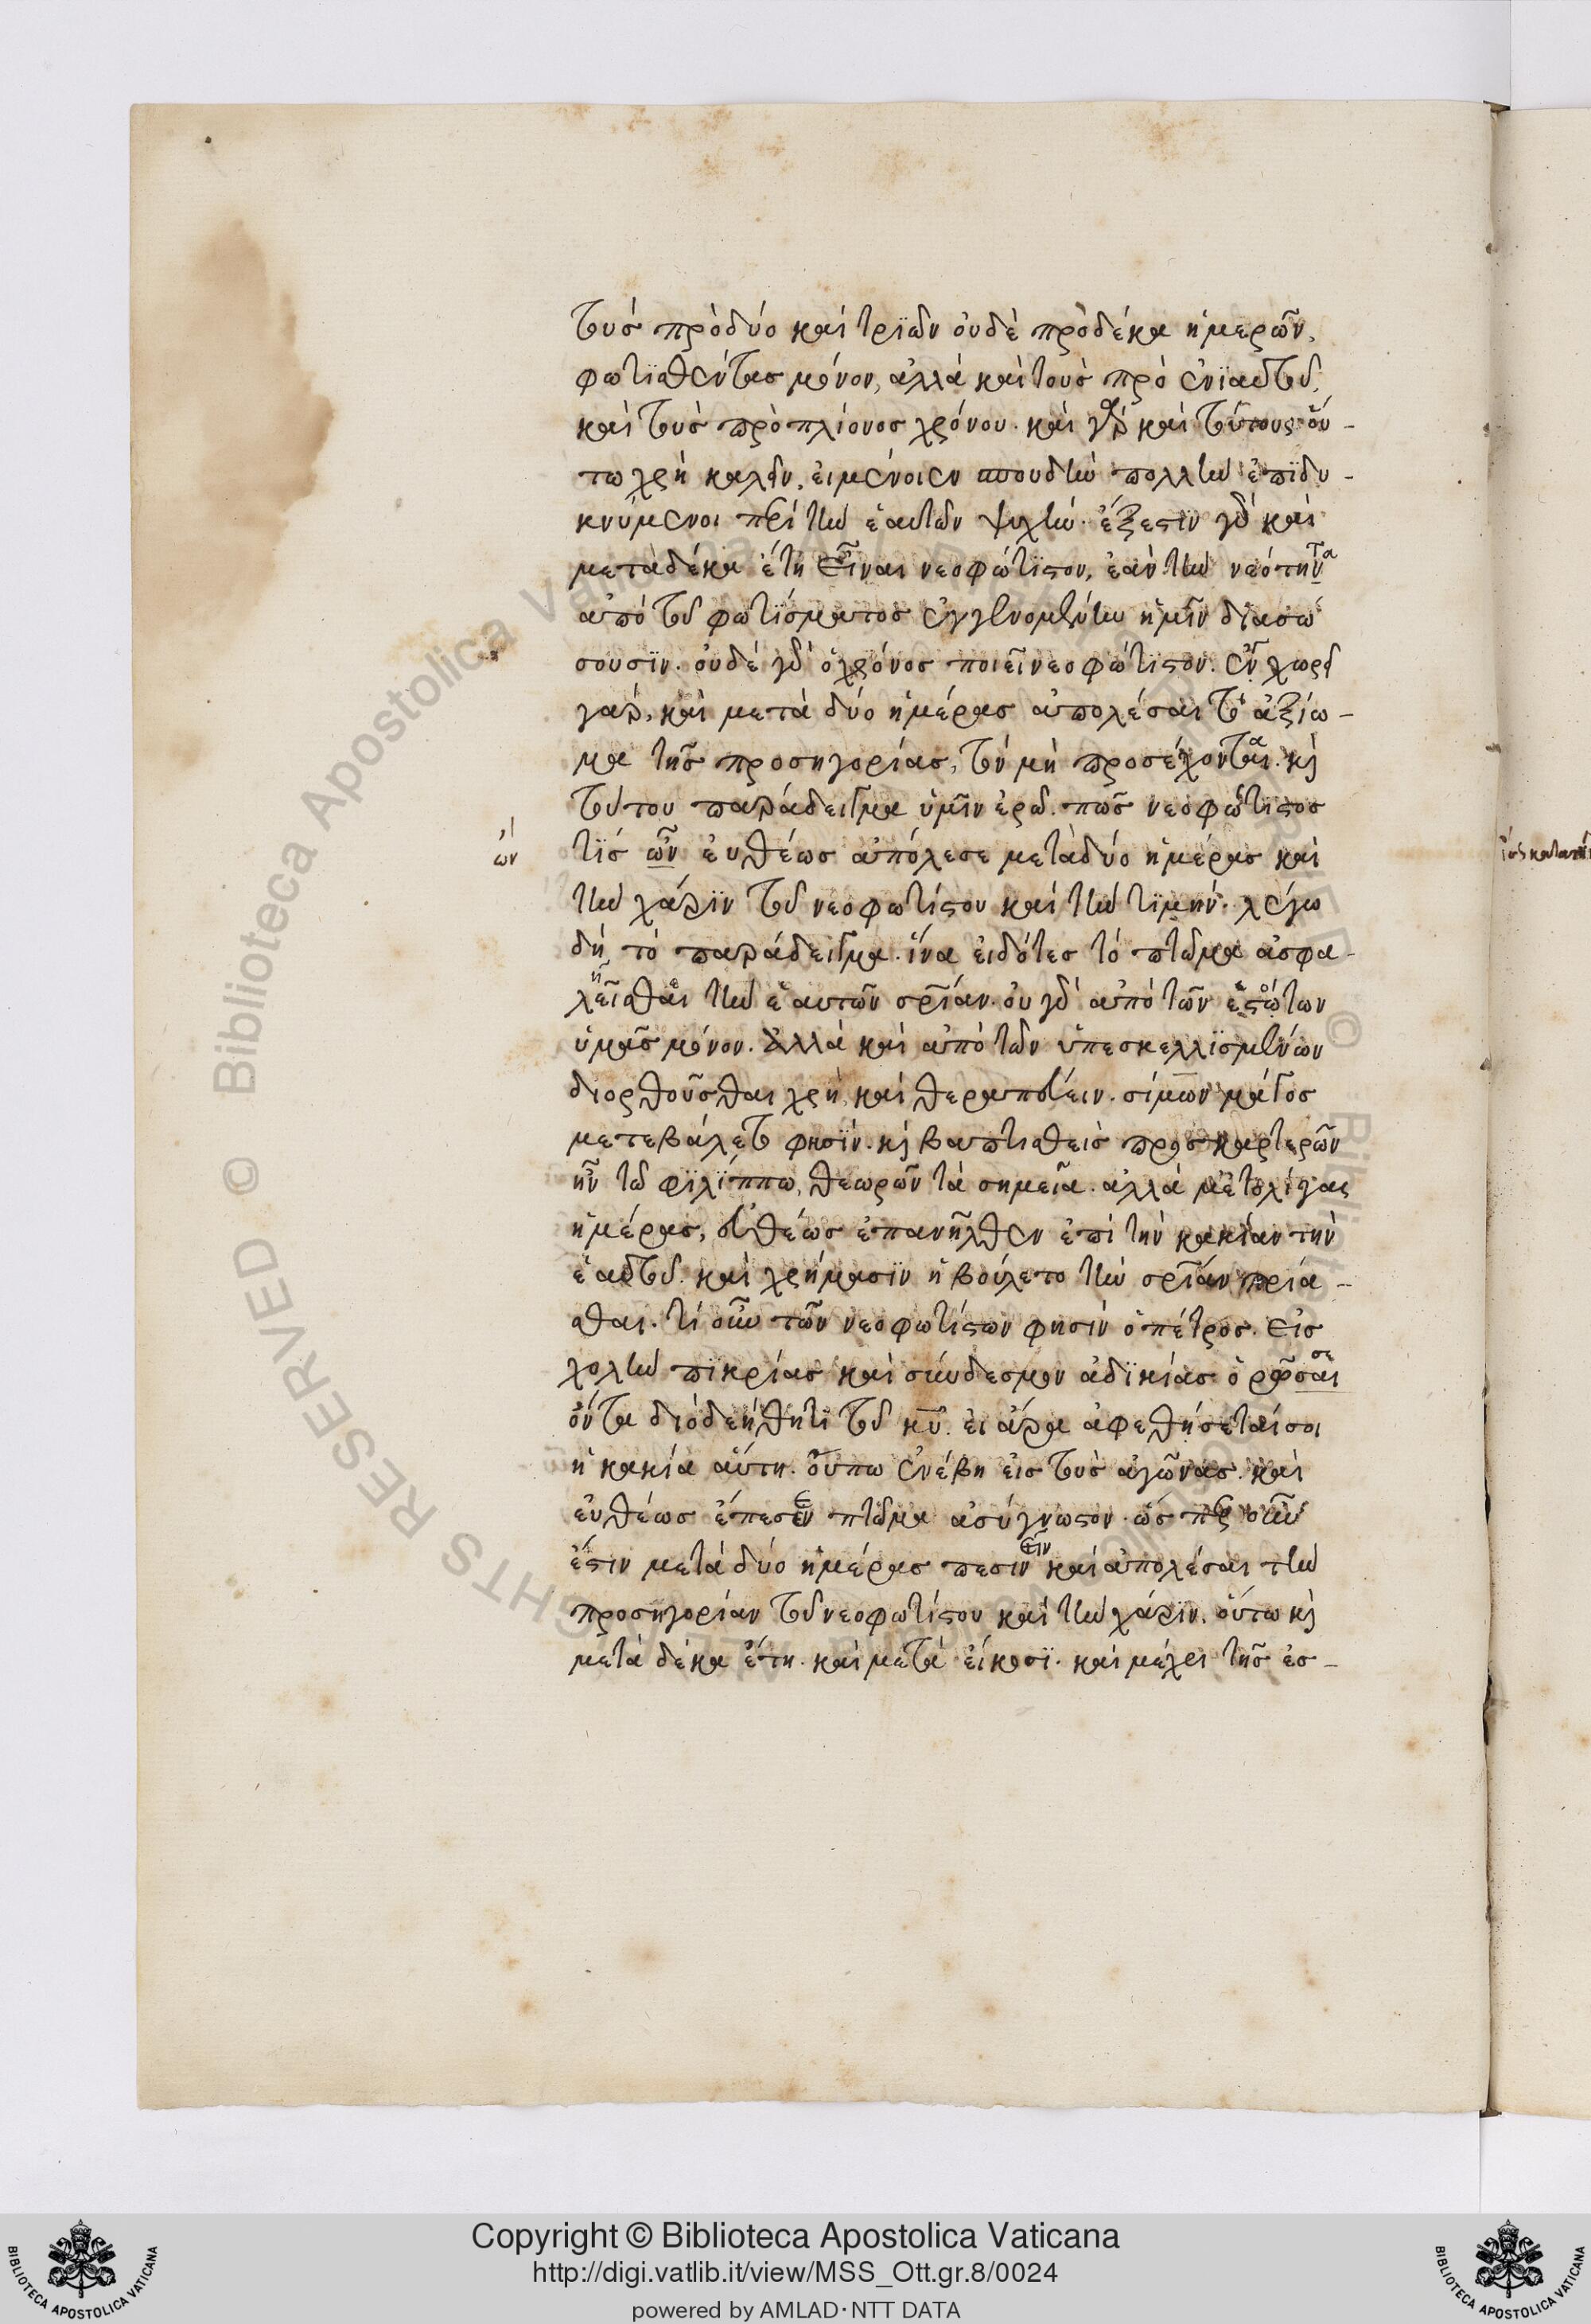 τοὺσ πρὸ δύο καὶ τριῶν οὐδὲ πρὸ δέκα ἡμερῶν,
φωτϊσθέντασ μόνον, ἀλλὰ καὶ τοὺσ πρὸ ἐνϊαυτοῦ,
καὶ τοὺσ πρὸ πλίονοσ χρόνου. καὶ γὰρ καὶ τούτους οὕ-
τω χρὴ καλεῖν, εἰ μένοιεν σπουδὴν πολλὴν ἐπϊδυ-
κνύμενοι περὶ τὴν ἑαυτῶν ψυχήν. ἔξεστϊν γὰρ καὶ
μετὰ δέκα ἔτη εἶναι νεοφώτϊστον, ἐὰν τὴν νεότητα
ἀπὸ τοῦ φωτϊσματοσ ἐγγενομένην ἡμῖν διασώ
σουσϊν. οὐδὲ γὰρ ὁ χρόνοσ ποιεῖ νεοφώτϊστον. ἐν χωρεῖ
γὰρ, καὶ μετὰ δύο ἡμέρασ ἀπολέσαι τὸ ἀξίω-
μα τῆσ προσηγορίασ, τὸν μὴ προσέχοντα. καὶ
τούτου παράδειγμα ὑμῖν ἐρῶ. πῶσ νεοφώτιστοσ
ὤν τϊσ ὢν εὐθέωσ ἀπόλεσε μετὰ δύο ἡμέρασ καὶ
τὴν χάρϊν τοῦ νεοφωτίστου καὶ τὴν τϊμήν. λέγω
δὴ τὸ παράδειγμα. ἵνα εἰδότεσ τὸ πτῶμα ἀσφα-
λῆσθε τὴν ἑαυτῶν σρίαν. οὐ γὰρ ἀπὸ τῶν ἑστώτων
ὑμᾶσ μόνον. ἀλλὰ καὶ ἀπὸ τῶν ὑπεσκελλϊσμένων
διορθοῦσθαι χρὴ, καὶ θεραπεύειν. σίμων μάγοσ
μετεβάλετο φησϊν. καὶ βαπτισθεὶσ προσκαρτερῶν
ἦν τῶ φϊλίππω, θεωρῶν τὰ σημεῖα. ἀλλὰ μετολίγας
ἡμέρασ, εὐθέωσ ἐπανῆλθεν ἐπὶ τὴν κακίαν τὴν
ἑαυτοῦ. καὶ χρήμασϊν ἠβούλετο τὴν σρίαν πρία-
σθαι. τί οὖν τῶν νεοφωτίστων φησὶν ὁ πέτροσ. εἰσ
χολὴν πϊκρίασ καὶ σύνδεσμον ἀδϊκίασ ὁρῶ σε
ὄντα διὸ δεήθητι τοῦ κυ. εἰ ἄρα ἀφεθήσεταί σοι
ἡ κακία αὕτη. οὔπω ἐνέβη εἰσ τοὺσ ἀγῶνασ. καὶ
εὐθέωσ ἔπεσε πτῶμα ἀσύγνωστον. ὥσπερ οὖν
ἔστιν μετὰ δύο ἡμέρασ πεσεῖν καὶ ἀπολέσαι τὴν
προσηγορίαν τοῦ νεοφωτίστου καὶ τὴν χάρϊν, οὕτω καὶ
μετὰ δέκα ἔτη. καὶ μετὰ εἴκοσϊ. καὶ μέχρι τῆσ ἐσ-
Copyright © Biblioteca Apostolica Vaticana
http://digi.vatlib.it/view/MSS_Ott.gr.8/0024
powered by AMLAD·NTT DATA